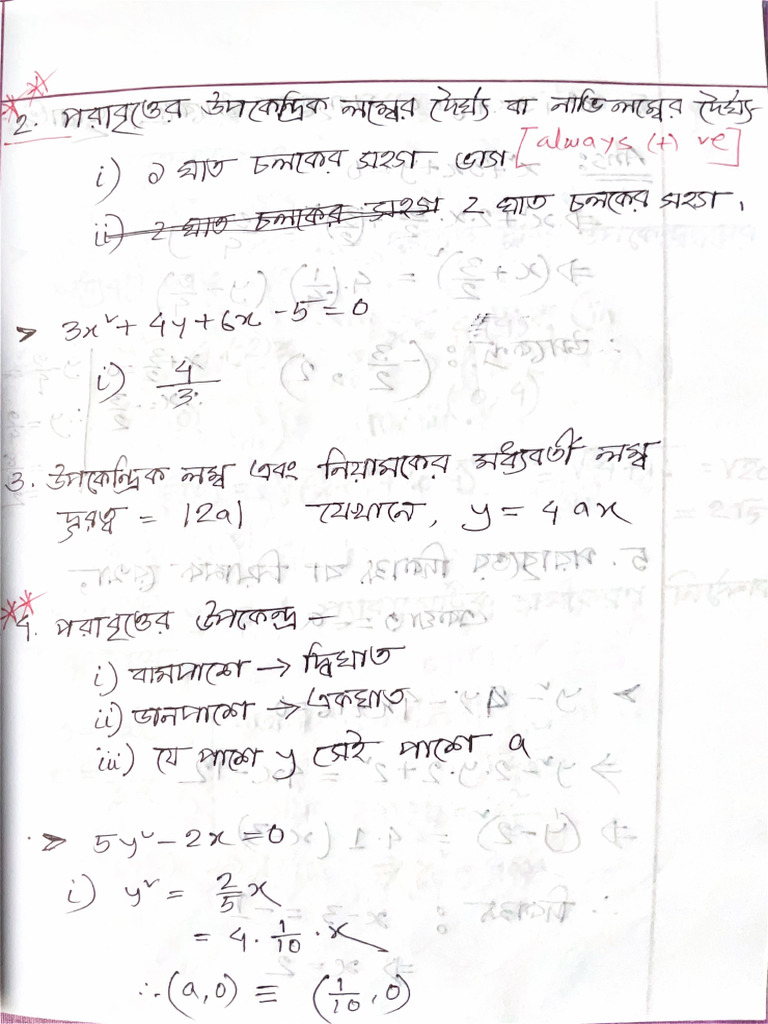 2. পরাবৃত্তের উপকেন্দ্রিক লম্বের দৈর্ঘ্য বা নাভিলম্বের দৈর্ঘ্য
i) ১ ঘাত চলকের সহগ ভাগ [always (+) ve]
ii) 2 ঘাত চলকের সহগ 2 ঘাত চলকের সহগ।
> 3x² + 4y + 6x - 5 = 0
i) 4/3
3. উপকেন্দ্রিক লম্ব এবং নিয়ামকের মধ্যবর্তী লম্ব
দূরত্ব = |2a| যেখানে, y = 4ax
4. পরাবৃত্তের উপকেন্দ্র -
i) বামপাশে → দ্বিঘাত
ii) ডানপাশে → একঘাত
iii) যে পাশে y সেই পাশে a
> 5y² - 2x = 0
i) y² = 2/5 x
= 4 · 1/10 · x
∴ (a, 0) ≡ (1/10, 0)